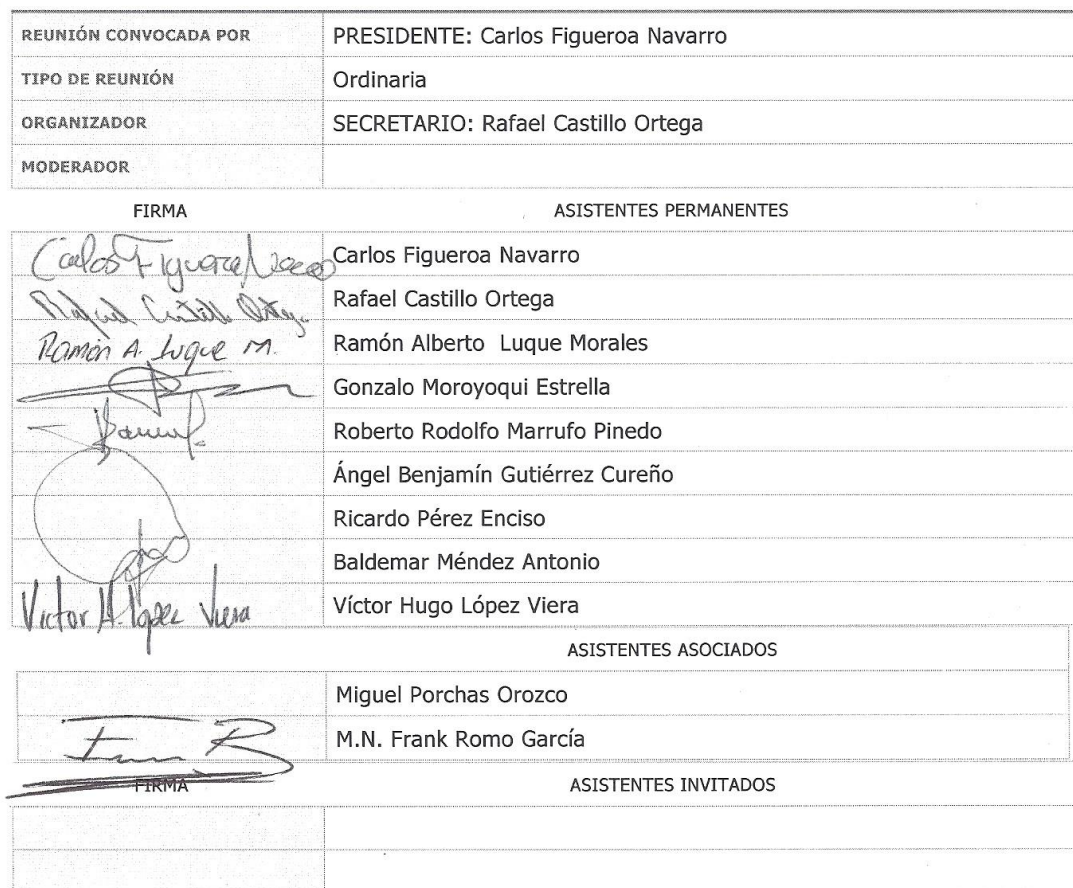 REUNIÓN CONVOCADA POR PRESIDENTE: Carlos Figueroa Navarro
TIPO DE REUNIÓN Ordinaria
ORGANIZADOR SECRETARIO: Rafael Castillo Ortega
MODERADOR
FIRMA ASISTENTES PERMANENTES
Carlos Figueroa Navarro Carlos Figueroa Navarro
Rafael Castillo Ortega Rafael Castillo Ortega
Ramón A. Luque M. Ramón Alberto Luque Morales
Gonzalo Moroyoqui Estrella
Roberto Rodolfo Marrufo Pinedo
Ángel Benjamín Gutiérrez Cureño
Ricardo Pérez Enciso
Baldemar Méndez Antonio
Victor H. López Viera Víctor Hugo López Viera
ASISTENTES ASOCIADOS
Miguel Porchas Orozco
M.N. Frank Romo García
FIRMA ASISTENTES INVITADOS